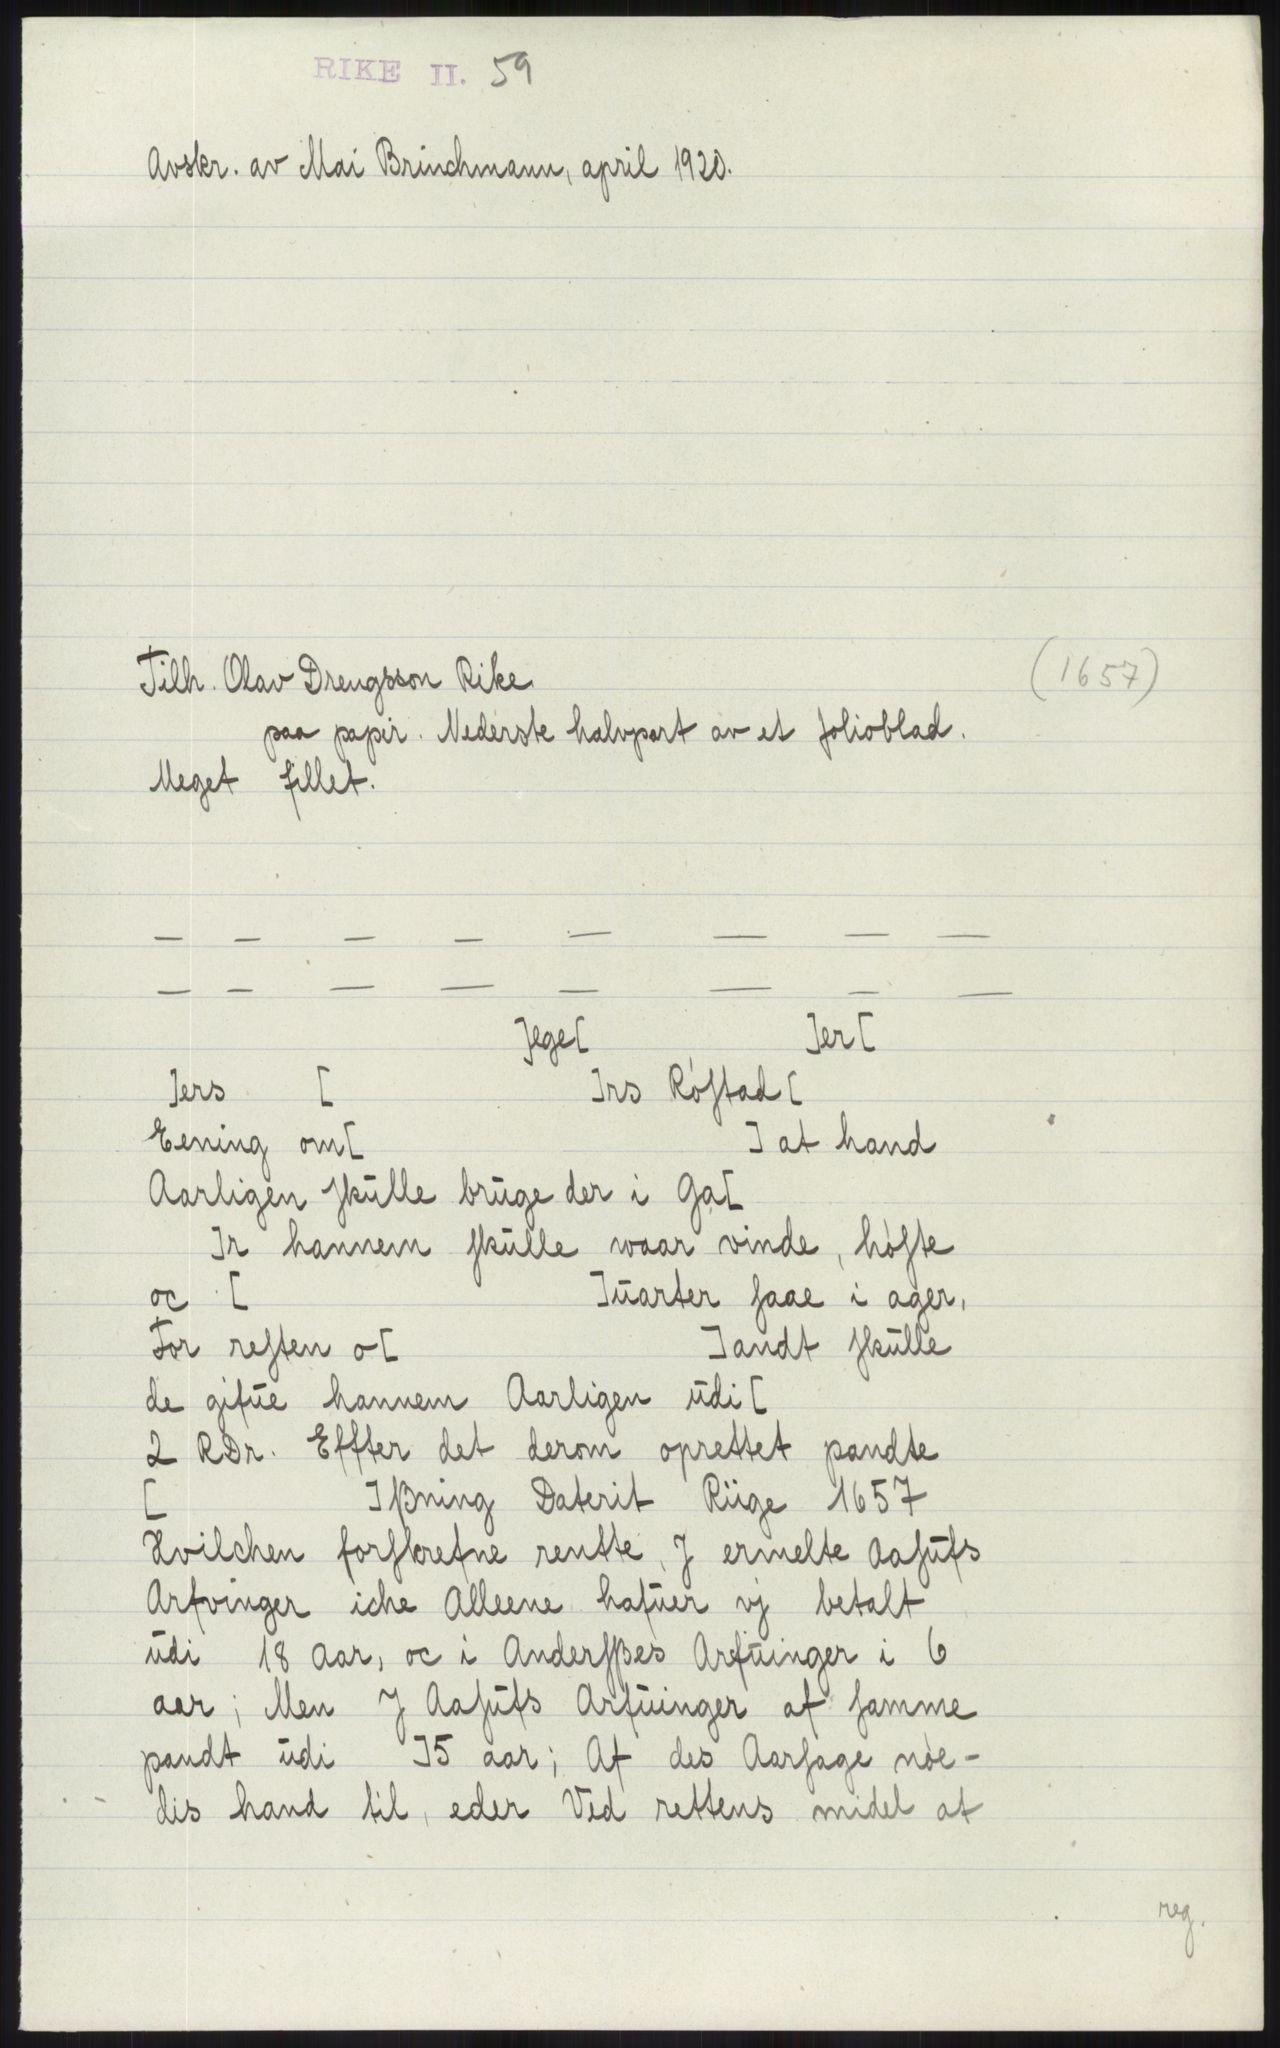 RIKE II. 59
Avskr. av Mai Brinchmann, april 1920.
Tilh. Olav Drengsson Rike (1657)
paa papir. Nederste halvpart av et folioblad.
Meget fillet.
— — — — — — — —
— — — — — — — —
]ege[ ]er[
]ers [ ]rs Röstad[
Eening om[ ] at hand
Aarligen skülle brüge der i Ga[
]r hannem skülle waar vinde, höste
oc [ ]üarter saae i ager,
For resten o[ ]andt skülle
de gifüe hannem Aarligen üdi[
2 RDr. Effter det derom oprettet pandte
[ ]ßning Daterit Riige 1657
Hvilchen forskrefne rentte, J ermelte Aasüfs
Arfvinger iche Alleene hafüer vj betalt
üdi 18 Aar, oc i Andersßes Arfüinger i 6
aar; Men J Aasüfs Arfüinger af samme
pandt üdi ]5 aar; Af des Aarsage nöe-
dis hand til, eder Ved rettens midel at
reg.